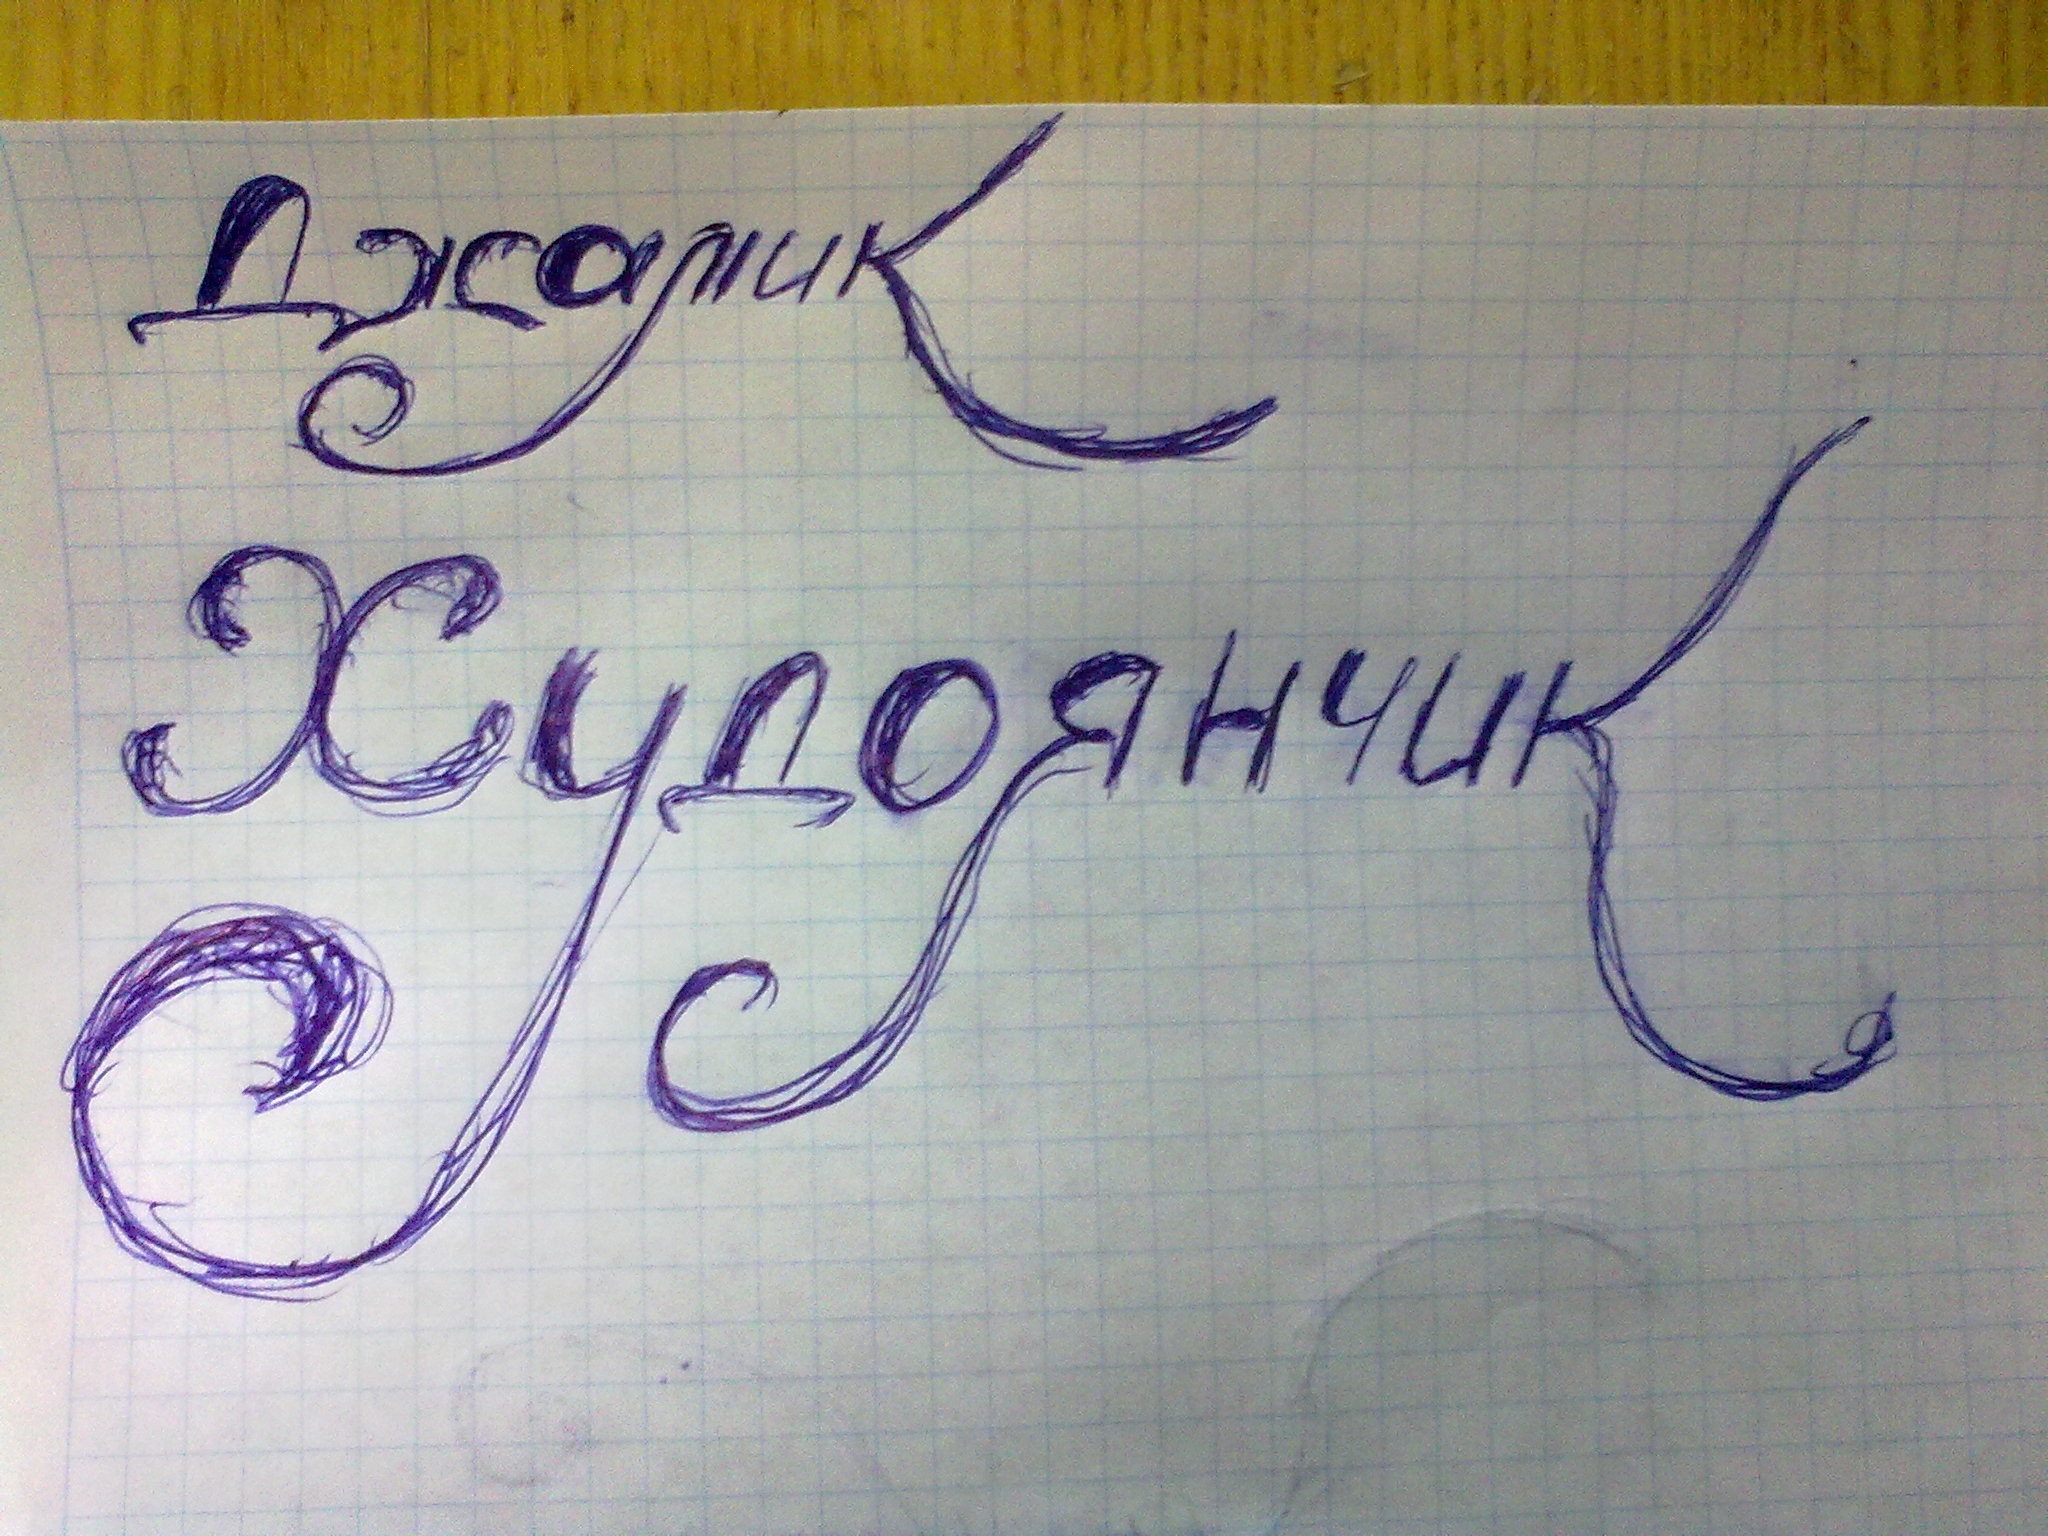 Джамик
Худоянчик